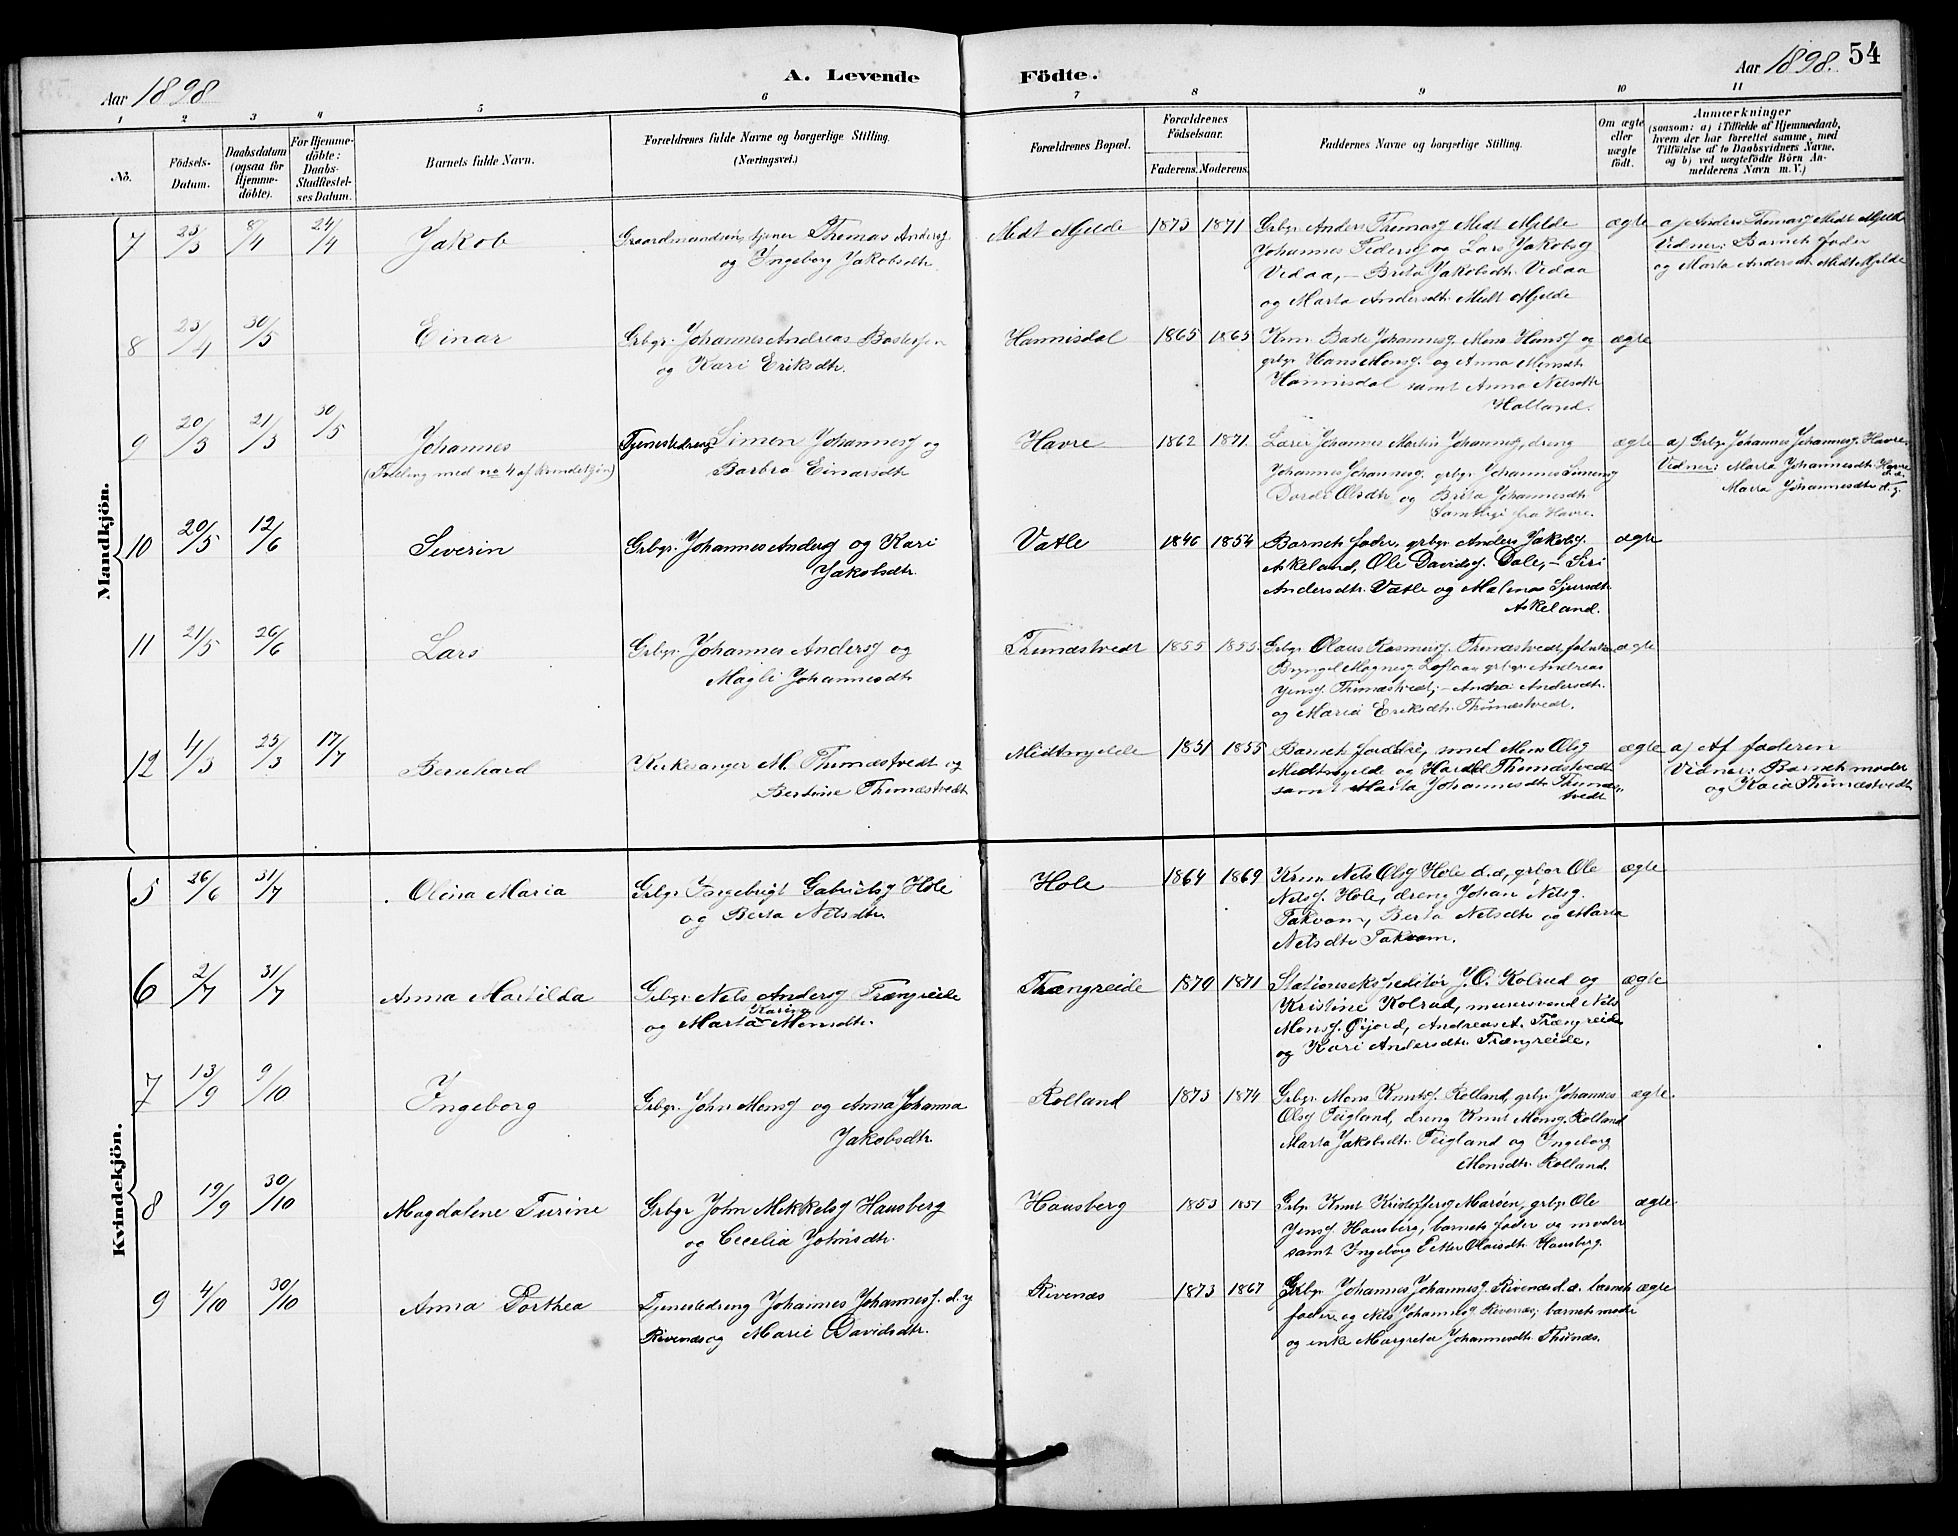 Aar 1898
A. Levende Födte.
Aar 1898.
54
1 2 3 4 5 6 7 8 9 10 11
No.
Födsels-Datum.
Daabsdatum (ogsaa for Hjemmedöbte).
For Hjemmedöbte: Daabs-Stadfæstelses Datum.
Barnets fulde Navn.
Forældrenes fulde Navne og borgerlige Stilling. (Næringsvei.)
Forældrenes Bopæl.
Forældrenes Födselsaar.
Faderens. Moderens.
Faddernes Navne og borgerlige Stilling.
Om ægte eller uægte födt.
Anmærkninger
(saasom: a) i Tilfælde af Hjemmedaab, hvem der har forrettet samme, med Tilföielse af to Daabsvidners Navne, og b) ved uægtefödte Börn Anmelderens Navn m. V.)
Mandkjön.
7 8/4 24/4 Jakob
Thomas Anders
og Ingeborg Jakobsdtr.
Medt Mjelde 1873 1871
Grbgr Anders Thomasg Medt Mjelde
Johannes Pedersg og Lars Jakobsg
Vedaa, – Brita Jakobsdtr. Vedaa
og Marta Andersdtr. Medt Mjelde
ægte
a) Anders Thomasg Medt Mjelde
Vidner: Barnets fader
og Marta Andersdtr Medt Mjelde
8 23/4 30/5 Einar
Grbgr. Johannes Andreas
og Kari Eriksdtr.
Hannisdal 1865 1865
Baste Johannesg. Mons Hansg og
grbgr Hans Monsg. og Anna Monsdtr
Hannisdal samt Anna Nelsdtr
Holland.
ægte
9 20/3 21/3 30/5 Johannes
(Tvilling med no 4 af kvindekjön)
Tjenestedreng Simon Johannesg og
Barbro Einarsdtr
Havre 1862 1871
Johannes Martin Johannesg, dreng
Johannes Johannesg. grbgr Johannes Simonsg
Olsdtr og Brita Johannesdtr
Samtlige fra Havre.
ægte
a) Grbgr Johannes Johannesg. Havre
Vidner: Marta Johannesdtr. Havre d.æ.
Marta Johannesdtr d.y.
10 20/5 12/6 Severin
Grbgr. Johannes Andersg og Kari
Jakobsdtr.
Vatle 1846 1854
Barnets fader, grbgr Anders Jakobsg.
Askeland, Ole Davidsg. Dale, – Siri
Andersdtr. Vatle og Malene Sjursdtr.
Askeland.
ægte
11 21/5 26/6 Lars
Grbgr. Johannes Andersg og
Magli Johannesdtr.
Thunæstvedt 1855 1855
Grbgr Olaus Rasmusg. Thunæstvedt,
Magnesg Loftaas grbgr Andreas
Jensg Thunæstvedt; –  Andersdtr.
og Maria Eriksdtr. Thunæstvedt.
ægte
12 4/3 25/3 17/7 Bernhard
Kirkesanger M. Thunæstvedt og
Bertine Thunæstvedt
Midtmjelde 1851 1855
Barnets forældre, smed Mons Olsg
Midtmjelde og Harald Thunæstvedt
samt Marta Johannesdtr. Thunæs-
tvedt
ægte
a) Af faderen
Vidner: Barnets moder
og Kaia Thunæstvedt
Kvindekjön.
5 26/6 31/7 Olina Maria
Grbgr. Ingebrigt Gabrielsg Hole
og Berta Nelsdtr.
Hole 1864 1869
Nels Olsg Hole d.æ, grbgr Ole
Nelsg. Hole, dreng Johan Nelsg.
Takvam, Berta Nelsdtr og Marta
Nelsdtr Takvam.
ægte
6 2/7 31/7 Anna Martilda
Grbgr Nels Andersg Trængreide
og Marta Karina Monsdtr.
Trængreide 1870 1871
Stationsekspeditør J. O. Kolrud og
Kristine Kolrud, murersvend Nels
Monsg. Øijord, Andreas A. Trængreide
og Kari Andersdtr. Trængreide.
ægte
7 13/9 9/10 Ingeborg
Grbgr. John Monsg og Anna Johanna
Jakobsdtr.
Rolland 1873 1874
Grbgr. Mons Knutsg. Rolland, grbgr Johannes
Olsg Teigland, dreng Knut Monsg. Rolland
Marta Jakobsdtr. Teigland og Ingeborg
Monsdtr. Rolland.
ægte.
8 19/9 30/10 Magdalene Turine
Grbgr John Mikkelsg Hausberg
og Cecelia Johnsdtr.
Hausberg 1853 1851
Grbgr. Knut Kristoffersg Marøen, grbgr Ole
Jensg. Hausberg, barnets fader og moder
samt Ingeborg Petter Olaisdtr. Hausberg.
ægte
9 4/10 30/10 Anna Dorthea
Tjenestedreng Johannes Johannesg. d. y
Rivenæs og Marie Davidsdtr.
Rivenæs 1873 1867
Grbgr. Johannes Johannesg. Rivenæs d.æ. barnets
fader og Nels Johannesg Rivenæs; barnets moder
og enke Margreta Johannesdtr. Thunæs.
ægte